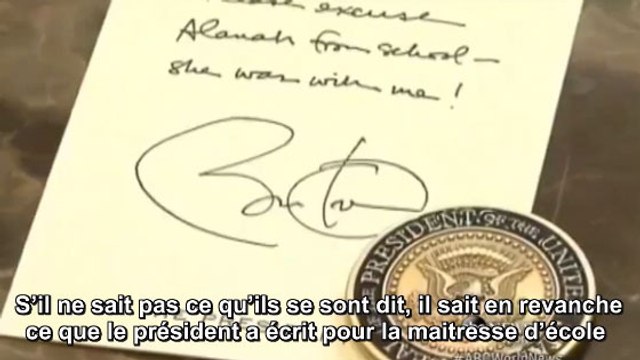 excuse
Alanah from school –
she was with me!
PRESIDENT OF THE UNITED
S'il ne sait pas ce qu'ils se sont dit, il sait en revanche
ce que le président a écrit pour la maitresse d'école
#ABCWorldNews